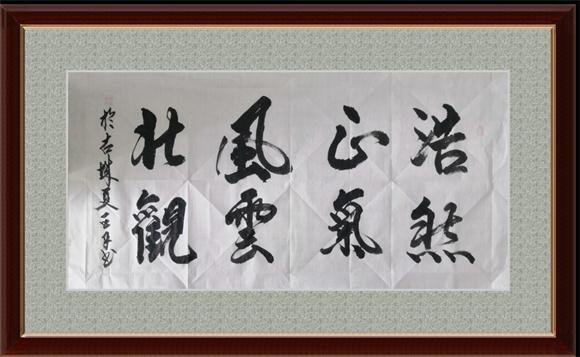 浩然
正氣
風雲
壯觀
於 夏